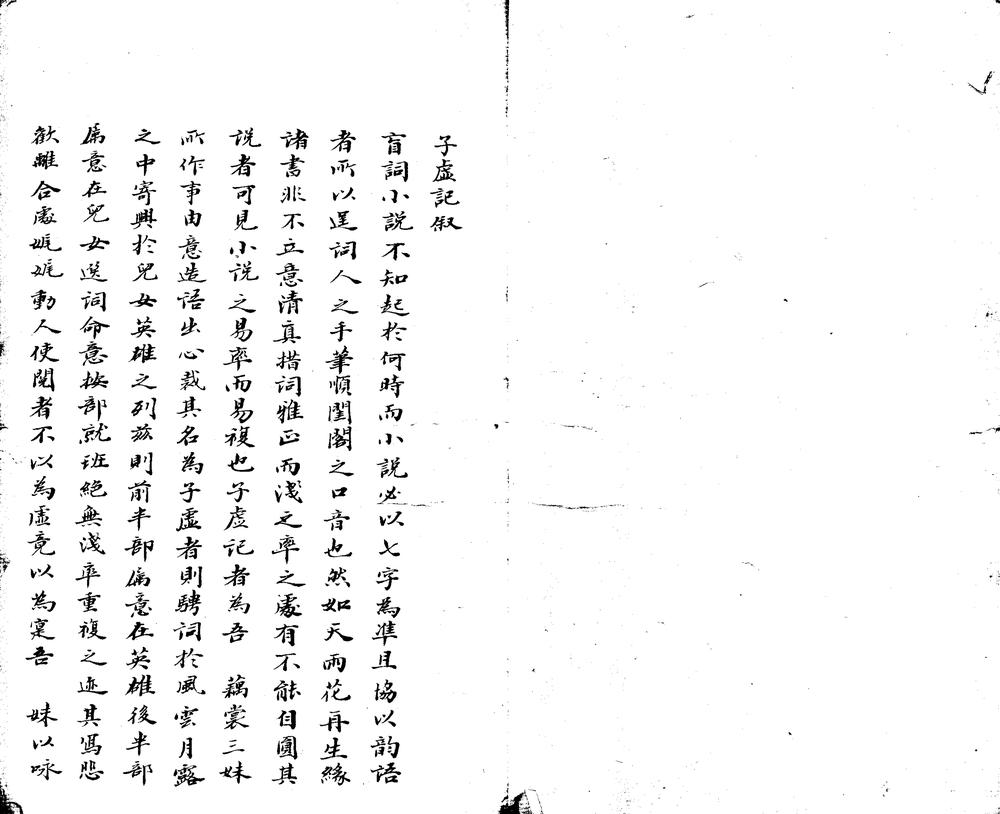 子虛記叙
盲詞小說不知起於何時而小說必以七字為準且協以韵語
者所以逞詞人之手筆順閨閣之口音也然如天雨花再生緣
諸書非不立意清真措詞雅正而淺之率之處有不能自圓其
說者可見小說之易率而易複也子虛記者為吾　藕裳三妹
所作事由意造語出心裁其名為子虛者則騁詞於風雲月露
之中寄興於兒女英雄之列茲則前半部屬意在英雄後半部
屬意在兒女選詞命意按部就班絕無淺率重複之迹其寫悲
歡離合處娓娓動人使閱者不以為虛竟以為寔吾　妹以咏